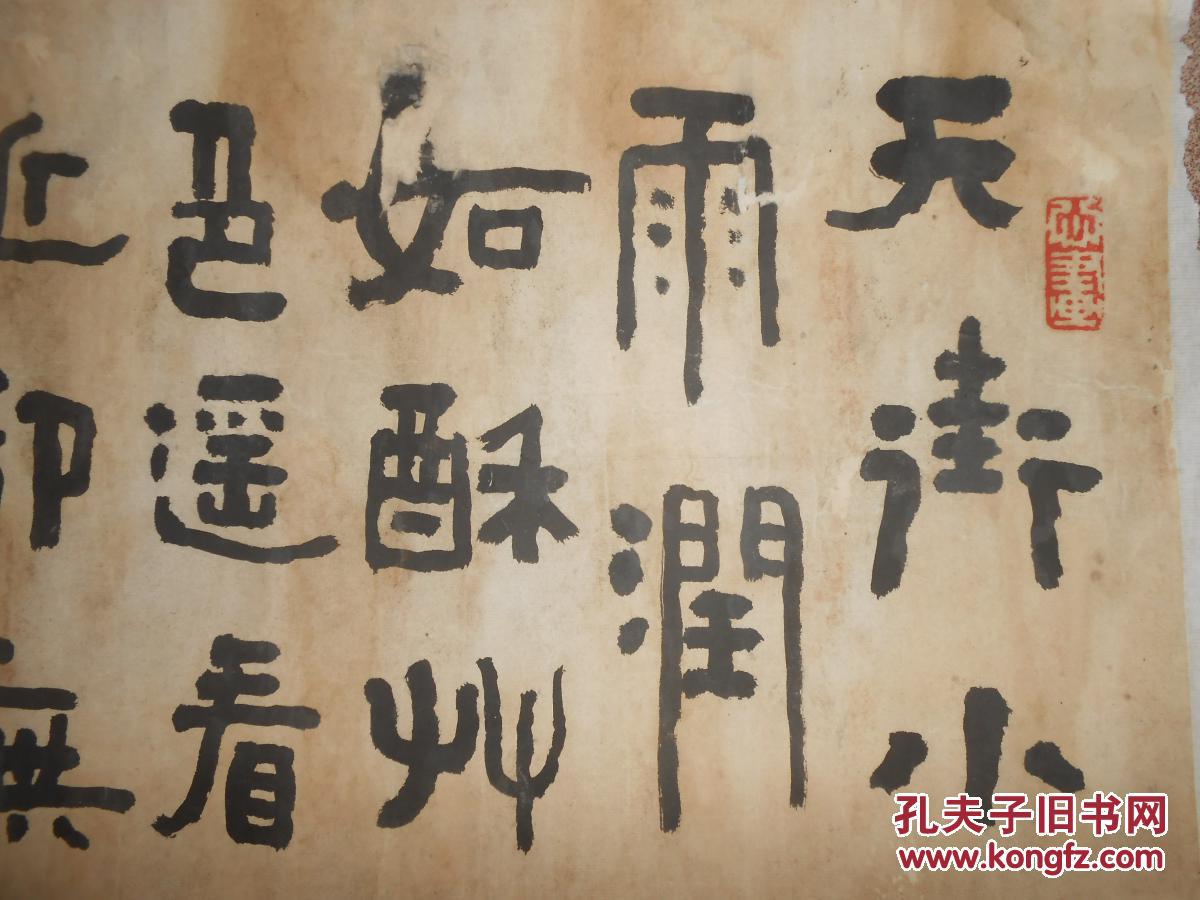 天街小
雨潤
如酥艸
色遥看
近却無
孔夫子旧书网
www.kongfz.com